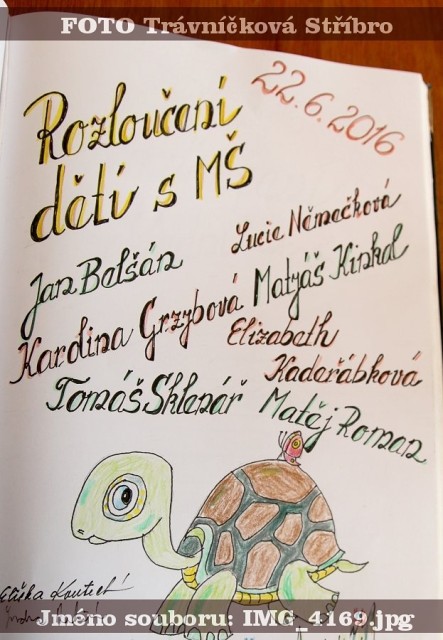 FOTO Trávníčková Stříbro
22.6.2016
Rozloučení
dětí s MŠ
Lucie Němečková
Jan Belšán
Matyáš Kinkal
Karolina Grzybová
Elizabeth
Kadeřábková
Tomáš Sklenář
Matěj Roman
Eliška
Jméno souboru: IMG_4169.jpg